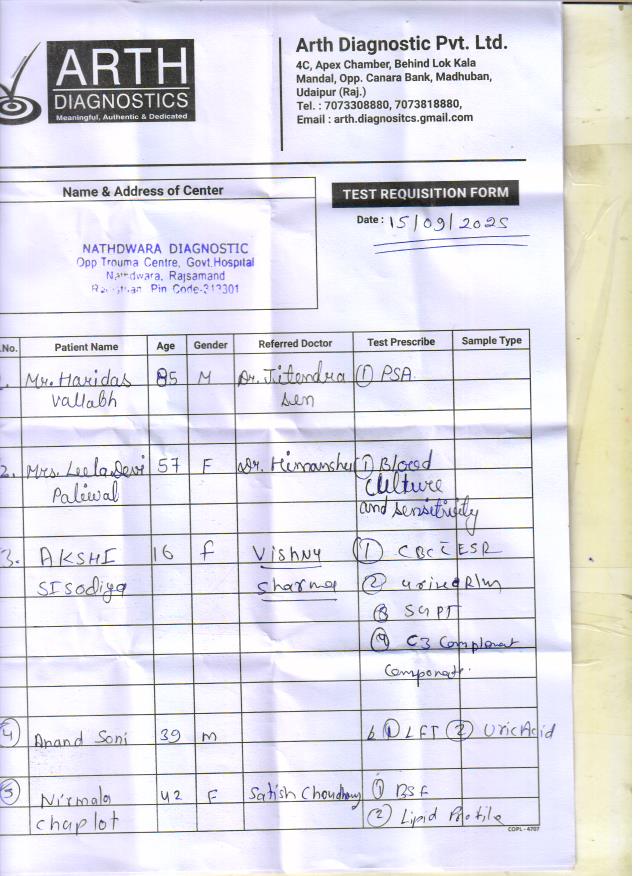 ARTH
DIAGNOSTICS
Meaningful, Authentic & Dedicated
Arth Diagnostic Pvt. Ltd.
4C, Apex Chamber, Behind Lok Kala
Mandal, Opp. Canara Bank, Madhuban,
Udaipur (Raj.)
Tel. : 7073308880, 7073818880,
Email : arth.diagnositcs.gmail.com
Name & Address of Center
TEST REQUISITION FORM
Date : 15/09/2025
NATHDWARA DIAGNOSTIC
Opp Trouma Centre, Govt.Hospital
Nathdwara, Rajsamand
Pin Code-313301
.No. Patient Name Age Gender Referred Doctor Test Prescribe Sample Type
1. Mr. Haridas 85 M Dr. Jitendra ① PSA.
Vallabh sen
2. Mrs. Leela Devi 57 F Dr. Himanshu ① Blood
Paliwal culture
and sensitivity
3. AKSHI 16 f Vishnu ① CBC ESR
SISodiya Sharma ② urine R/m
③ SGPT
④ C3 Complement
Componate.
④ Anand Soni 39 m ① LFT ② Uric Acid
⑤ Nirmala 42 F Satish Choudhary ① BSF
chaplot ② Lipid Profile
COPL - 4707